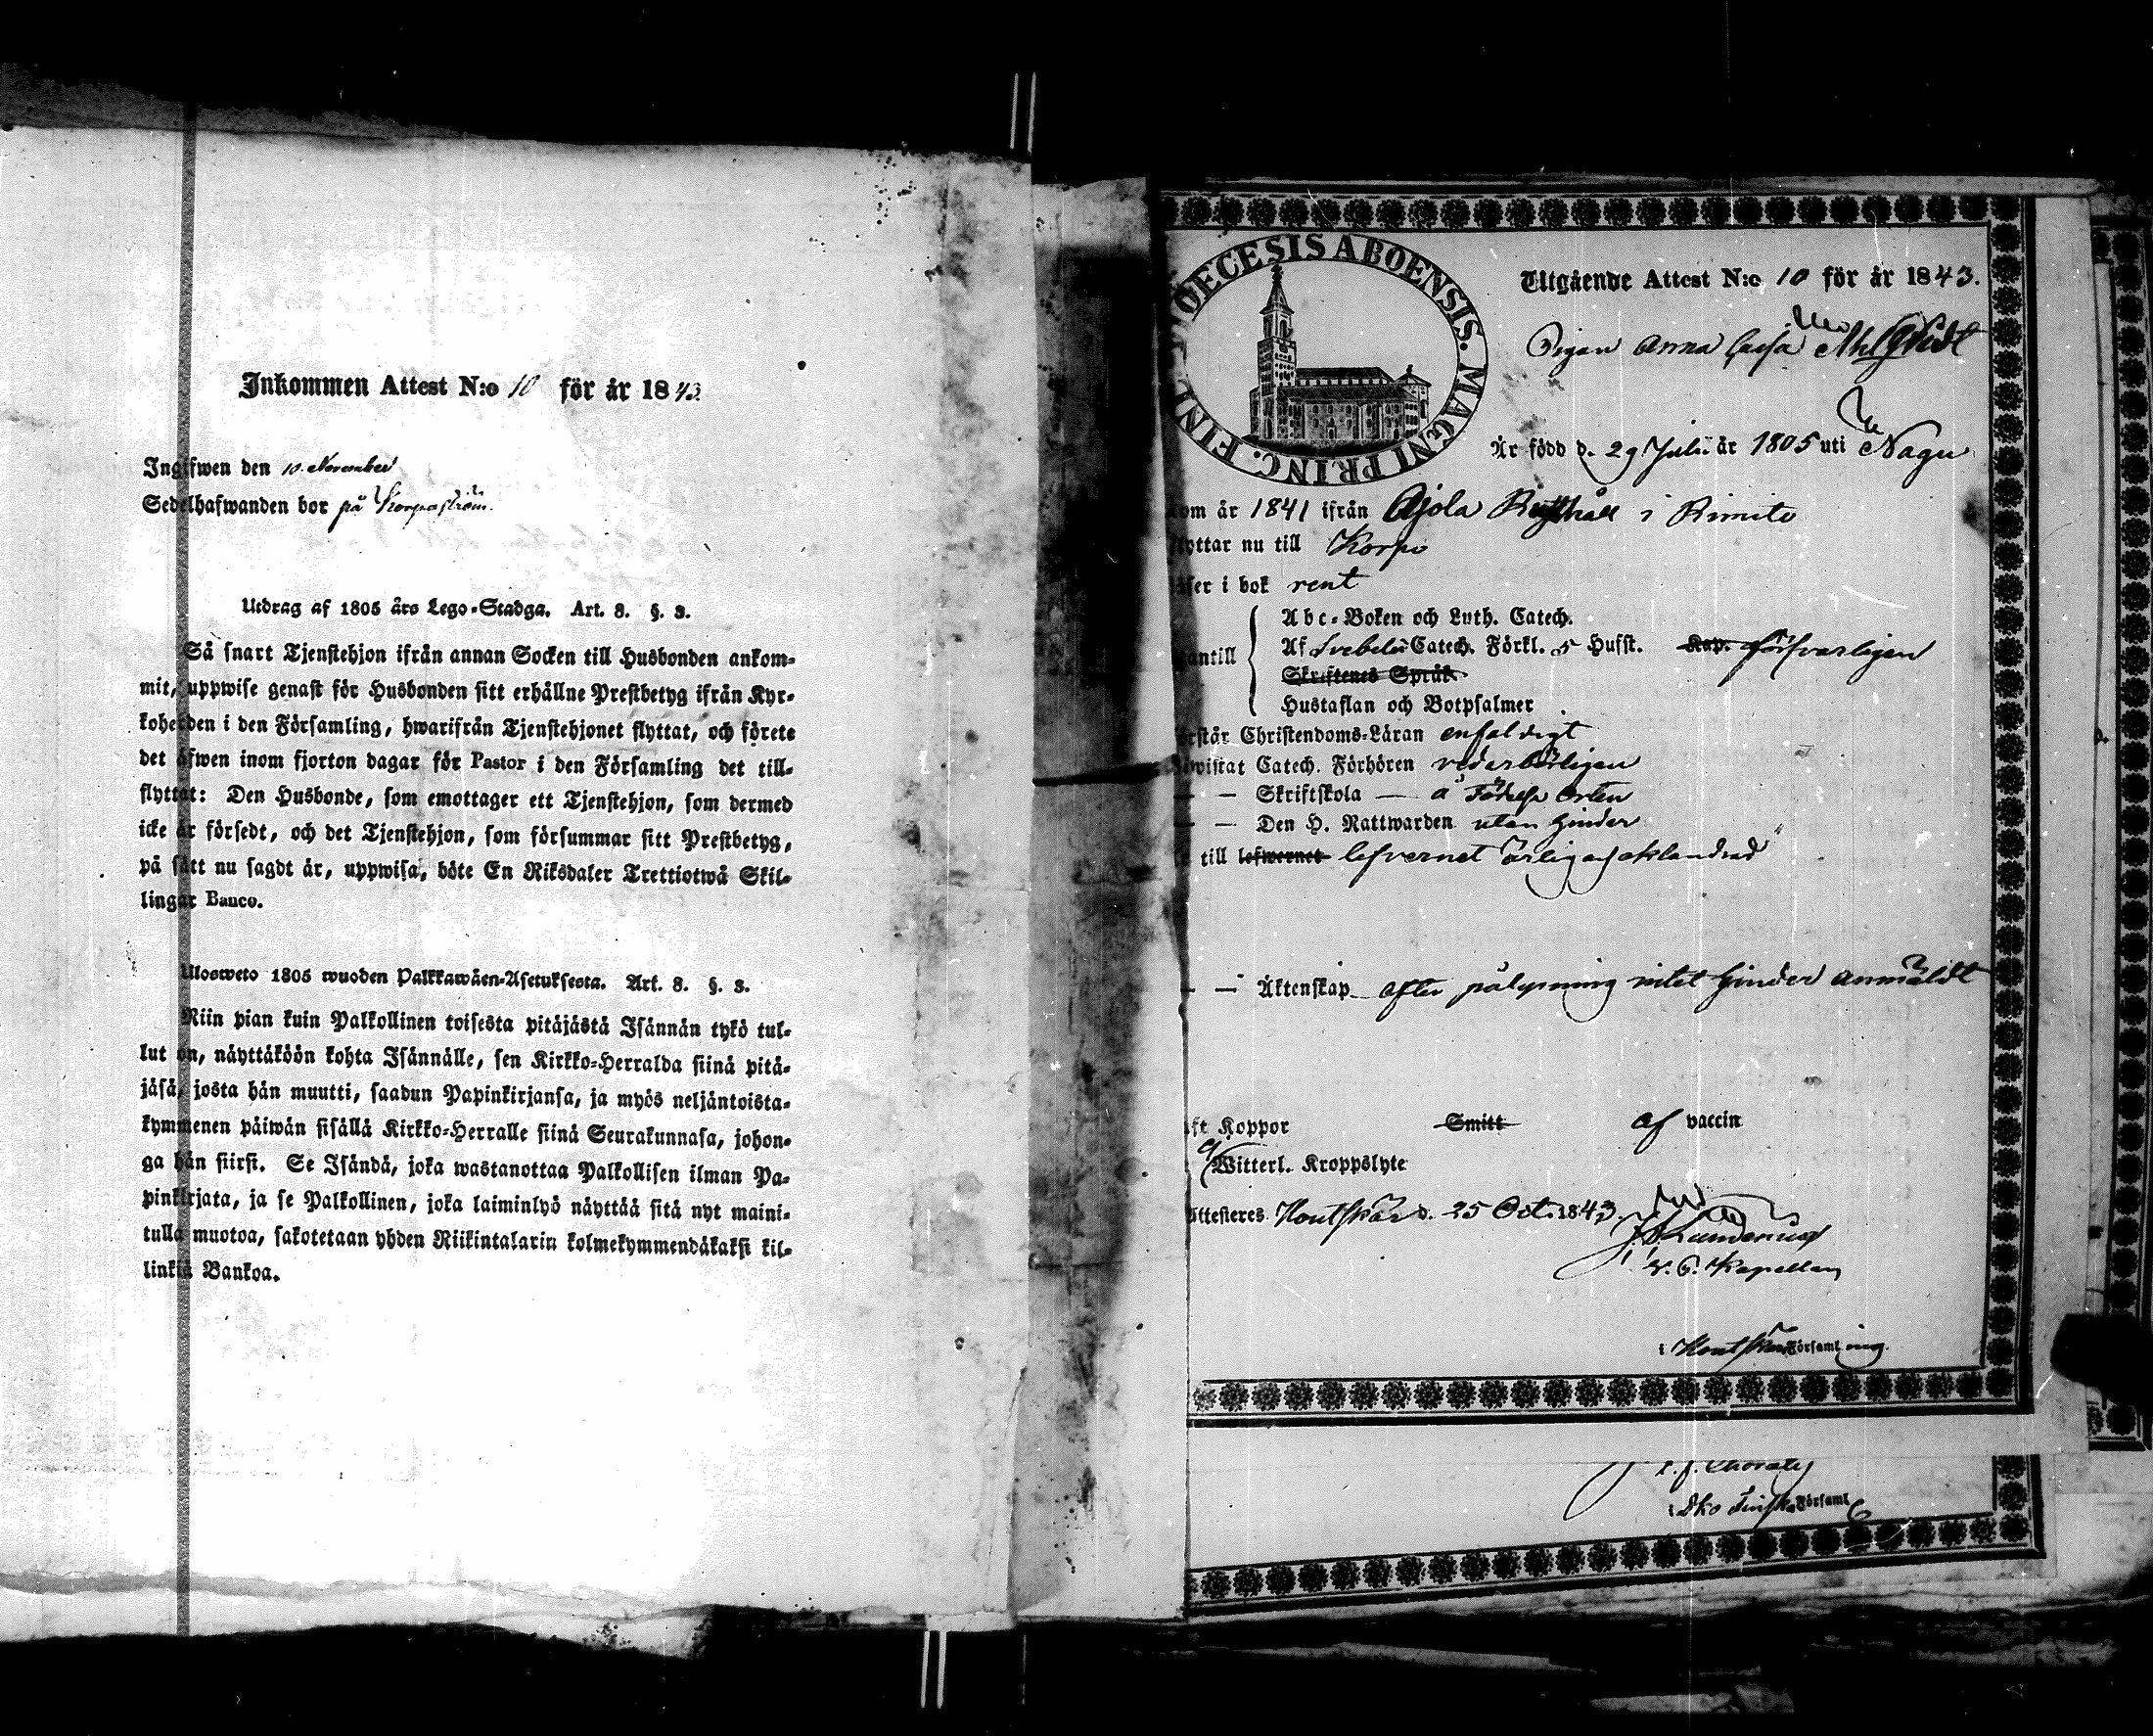 Inkommen Attest N:o 10 för år 1843.
Ingifwen den 10 November
Sedelhafwanden bor på Korpoström.
Utdrag af 1805 års Lego-Stadga. Art. 8. §. 3.
Så snart Tjenstehjon ifrån annan Socken till Husbonden ankom-
mit, uppwise genast för Husbonden sitt erhållne Prestbetyg ifrån Kyr-
koherden i den Församling, hwarifrån Tjenstehjonet flyttat, och förete
det äfwen inom fjorton dagar för Pastor i den Församling det till-
flyttat: Den Husbonde, som emottager ett Tjenstehjon, som dermed
icke är försedt, och det Tjenstehjon, som försummar sitt Prestbetyg,
på sätt nu sagdt är, uppwisa, böte En Riksdaler Trettiotwå Skil-
lingar Banco.
Ulosweto 1805 wuoden Palkkawäen-Asetuksesta. Art. 8. §. 3.
Niin pian kuin Palkollinen toisesta pitäjästä Isännän tykö tul-
lut on, näyttäköön kohta Isännälle, sen Kirkko-Herralda siinä pitä-
jäsä, josta hän muutti, saadun Papinkirjansa, ja myös neljäntoista-
kymmenen päiwän sisällä Kirkko-Herralle siinä Seurakunnasa, johon-
ga hän siirsi. Se Isändä, joka wastanottaa Palkollisen ilman Pa-
pinkirjata, ja se Palkollinen, joka laiminlyö näyttää sitä nyt maini-
tulla muotoa, sakotetaan yhden Riikintalarin kolmekymmendäkaksi kil-
linkiä Bankoa.
DIOECESIS ABOENSIS. MAGNI PRINC. FINL
Utgående Attest N:o 10 för år 1843.
Pigan Anna Cajsa
Är född d. 29 Julii år 1805 uti Nagu
kom år 1841 ifrån Ajola i Rimito
flyttar nu till Korpo
läser i bok rent
antill
Abc-Boken och Luth. Catech.
Af Svebelii Catech. Förkl. 5 Hufst. Kap. försvarligen
Skriftenes Språk
Hustaflan och Botpsalmer
förstår Christendoms-Läran enfaldigt
bewistat Catech. Förhören vederbörligen
— — Skriftskola — å Födelse Orten
— — Den H. Nattwarden utan hinder
är till lefwernet lefvernet ärlig och oklandrad
— — Äktenskap efter pålysning intet hinder anmäldt
haft Koppor Smitt af vaccin
Witterl. Kroppslyte
Attesteres Houtskär d. 25 Oct. 1843.
V. C. Kapellan
i Houtskär Församling.
Församl